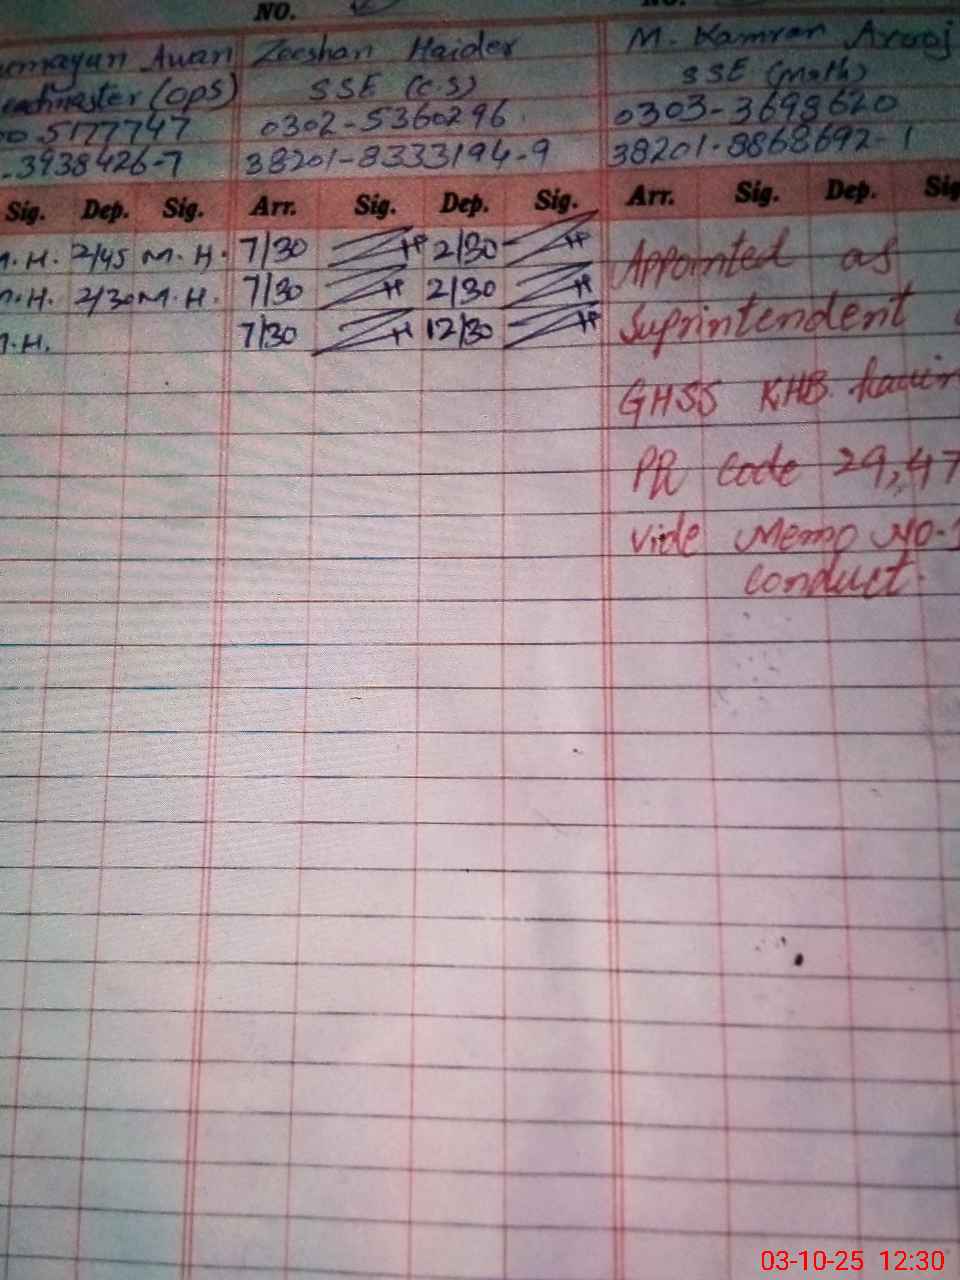 NO.
Awan Zeeshan Haider M. Kamran Arooj
(OPS) SSE (C.S) SSE (Math)
5177747 0302-5360296 0303-3698620
3938426-7 38201-8333194-9 38201-8868692-1
Sig. Dep. Sig. Arr. Sig. Dep. Sig. Arr. Sig. Dep. Sig
M.H. 2/45 M.H. 7/30 2/30 Appointed as
M.H. 2/30 M.H. 7/30 2/30
M.H. 7/30 12/30 Suprintendent
GHSS KHB
PR Code 29,47
vide Memo No.
conduct.
03-10-25 12:30